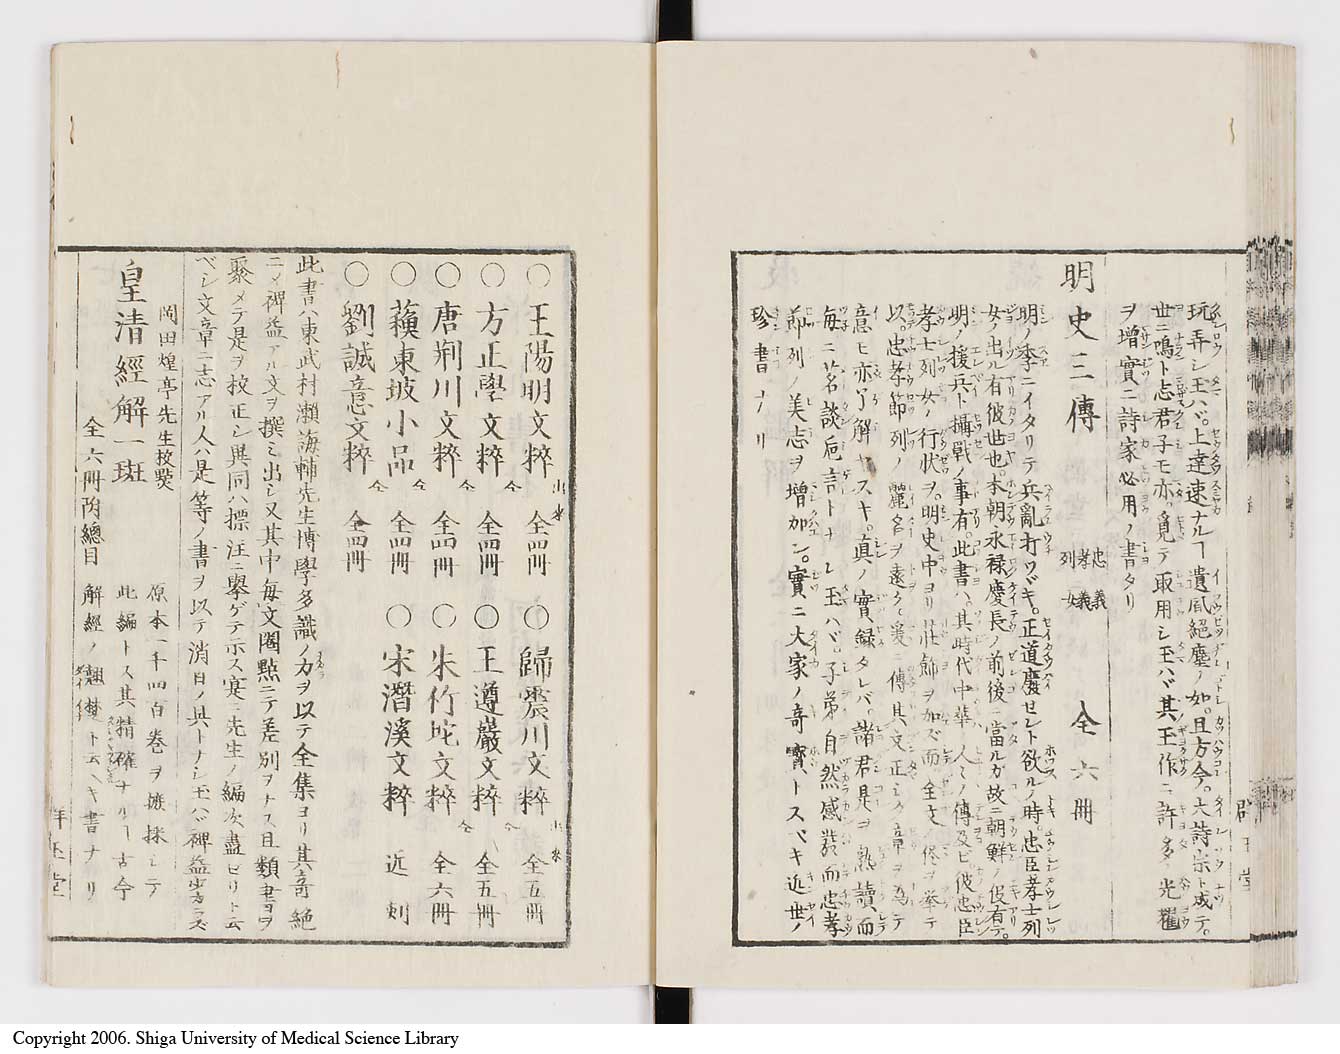 玩弄シ玉ハバ。上達速ナルヿ遺風絕塵ノ如。且方今。六詩宗ト成テ。
世ニ鳴ト志君子モ亦。覓テ取用シ玉ハバ其玉作ニ許多ノ光耀
ヲ增實ニ詩家必用ノ書タリ
明史三傳 忠義 孝義 列女 全六冊
明ノ季ニイタリテ兵亂打ツヾキ。正道廢セント欲ルノ時。忠臣孝士列
女ノ出ル有彼世也。本朝永禄慶長ノ前後ニ當ルガ故ニ朝鮮ノ役有テ。
明ノ援兵ト攝戰ノ事有。此書ハ。其時代中華ノ人々ノ傳及ビ彼忠臣
孝士列女ノ行狀ヲ。明史中ヨリ壯飾ヲ加ズ而全文ノ侭ヲ挙テ
以。忠孝節列ノ麗名ヲ遠ク傳其文正シク章ヲ為テ
意モ亦了解シヤスキ。真ノ實録タレバ。諸君是ヲ熟讀而
每ニ茗談卮言トナシ玉ハバ子弟自然感發而忠孝
節列ノ美志ヲ增加ン。實ニ大家ノ奇寶トスベキ近世ノ
珍書ナリ
○王陽明文粹 出来 全四冊 ○歸震川文粹 出来 全五冊
○方正學文粹 仝 全四冊 ○王遵巖文粹 仝 全五冊
○唐荊川文粹 仝 全四冊 ○朱竹垞文粹 仝 全六冊
○蘓東坡小品 仝 全四冊 ○宋潛溪文粹 近刻
○劉誠意文粹 仝 全四冊
此書ハ東武村瀨海輔先生博學多識ノ力ヲ以テ全集ヨリ其奇絶
ニメ裨益アル文ヲ撰ミ出シ又其中每文圏點ニテ差別ヲナス且類書ヨヲ
聚メテ是ヲ校正シ異同ハ標注ニ擧ゲテ示ス寔ニ先生ノ編次盡セリト云
ベシ文章ニ志アル人ハ是等ノ書ヲ以テ消日ノ具トナシ玉ハバ裨益少カラズ
岡田煌亭先生校閲
皇清經解一斑
全六冊附總目
原本一千四百巻ヲ摭採シテ
此編トス其精確ナルヿ古今
解經ノ翹楚ト云ヘキ書ナリ